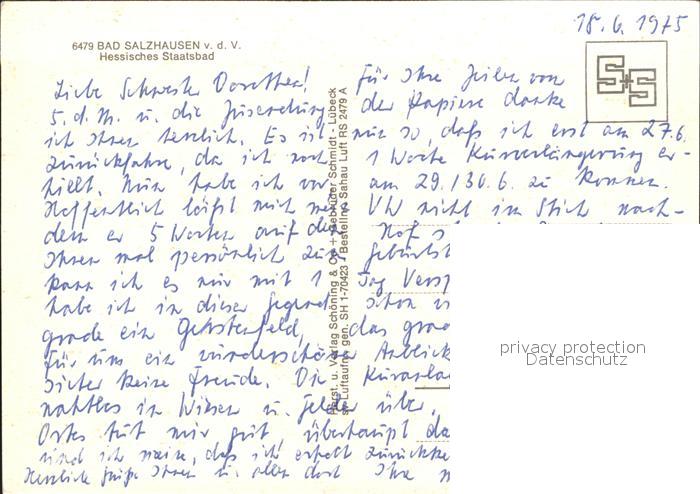 18.6.1975
6479 BAD SALZHAUSEN v. d. V.
Hessisches Staatsbad
Liebe Schwester Dorothea! Für Ihre Zeilen vom
5. d. M. u. die Zusendung der Papiere danke
ich Ihnen herzlich. Es ist nur so, daß ich erst am 27.6.
zurückfahre, da ich noch 1 Woche Kurverlängerung er-
hielt. Nun habe ich vor am 29./30.6. zu kommen.
Hoffentlich läßt mich mein VW nicht im Stich nach-
dem er 5 Wochen auf dem Hof
Ihnen mal persönlich zum
kann ich es nur mit 1 Tag
habe ich in dieser Gegend schon
grade ein Gerstenfeld, das
für uns ein wunderschöner Anblick
keine Freude. Die
nahtlos in Wiesen u. Felder über,
Ortes tut mir gut, überhaupt
und ich meine, daß ich erholt
Herzliche Grüße Ihnen u. allen dort Ihre
Horst. u. Verlag Schöning & Co + Gebrüder Schmidt - Lübeck
gen. SH 1-70423 - Bestellnr. Sahau Luft RS 2479 A
S+S
privacy protection
Datenschutz